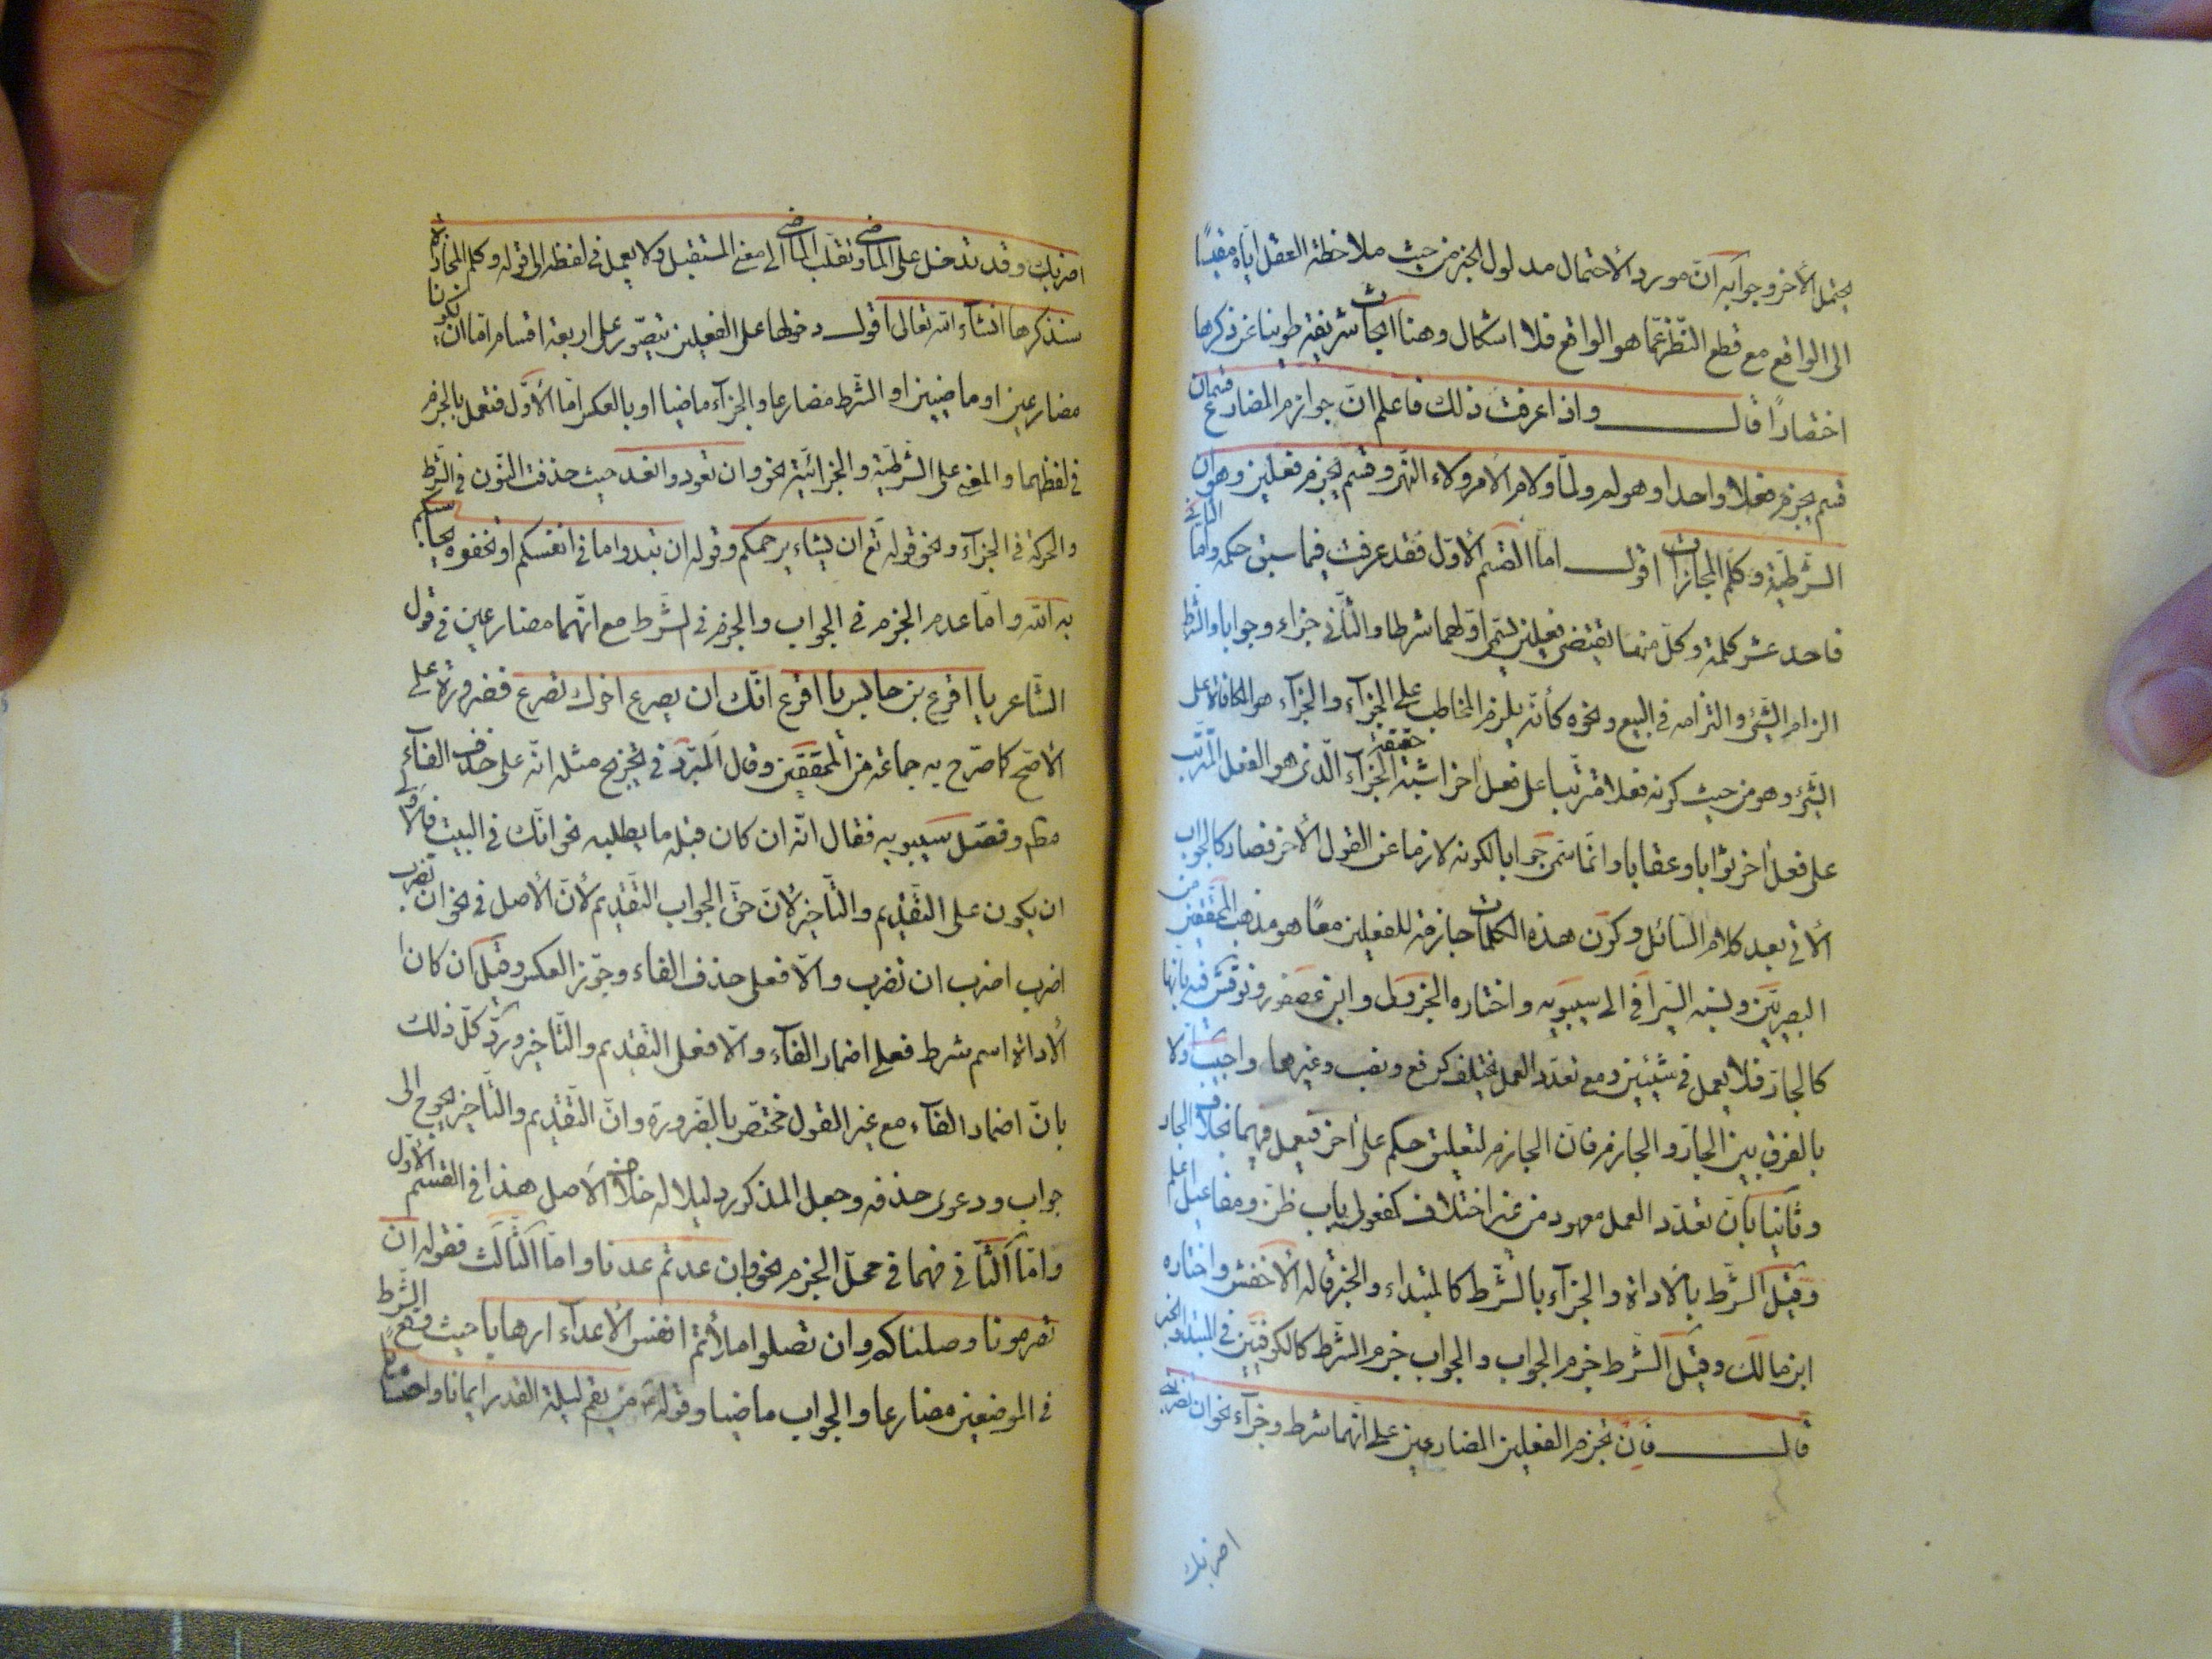 يحتمل الأخر وجوابه انّ مورد الأحتمال مدلول الخبر من حيث ملاحظة العقل ايّاه مقيسًا
الى الواقع مع قطع النّظر عمّا هو الواقع فلا اشكال وهنا ابحاث شريفة طوينا عن ذكرها
اختصارًا قال واذا عرفت ذلك فاعلم انّ جوازم المضارع قسمان
قسم يجزم فعلا واحدا وهو لم ولمّا ولام الأمر ولاء النّهى وقسم يجزم فعلين وهو ان
الشّرطيّة وكلم المجازات اقول امّا القسم الأوّل فقد عرفت فيما سبق حكمه وامّا الثانى
فاحد عشر كلمة وكلّ منهما يقتضى فعلين يسمّى اوّلهما شرطا والثّانى جزاء وجوابا والشّرط
الزام الشّئ والتزامه فى البيع ونحوه كأنّه يلزم المخاطب على الجزآء والجزآء هو المكافاة على
الشّئ وهو من حيث كونه فعلا مترتّبا على فعل اخر اشبه الجزآء حقيقة الّذى هو الفعل المترتّب
على فعل اخر ثوابا وعقابا وانّما سمّى جوابا لكونه لازما عن القول الأخر فصار كالجواب
الأتى بعد كلام السّائل وكون هذه الكلمات جازمة للفعلين معًا هو مذهب المحقّقين من
البصريّين ونسبه السّيرافى الى سيبويه واختاره الجزولى وابن عصفور ونوقش فيه بانّها
كالجارّ فلا يعمل فى شيئين ومع تعدّد العمل يختلف كرفع ونصب وغيرها واجيب اوّلا
بالفرق بين الجارّ والجازم فانّ الجازم لتعليق حكم على اخر فيعمل فيهما بخلاف الجار
وثانيا بانّ تعدّد العمل معهود من غير اختلاف كمفعولى باب ظنّ ومفاعيل اعلم
وقيل الشّرط بالاداة والجزآء بالشّرط كالمبتداء والخبر قاله الأخفش واختاره
ابن مالك وقيل الشّرط جزم الجواب والجواب جزم الشّرط كالكوفيّين فى المبتدا والخبر
قال فان تجزم الفعلين المضارعين على انّهما شرط وجزآء نحو ان تضربنى
اضربك
اضربك وقد تدخل على الماضى وتقلب الماضى الى معنى المستقبل ولا يعمل فى لفظه الى قوله وكلم المجازاة
سنذكرها انشآء الله تعالى اقول دخولها على الفعلين يتصوّر على اربعة اقسام امّا ان يكونا
مضارعين او ماضيين او الشّرط مضارعا والجزآء ماضيا او بالعكس امّا الأوّل فتعمل بالجزم
فى لفظهما والمعنى على الشّرطيّة والجزائيّة نحو وان تعودوا نعد حيث حذفت النّون فى الشّرط
والحركة فى الجزآء ونحو قوله تع ان يشاء يرحمكم وقوله ان تبدوا ما فى انفسكم او تخفوه يحاسبكم
به الله وامّا عدم الجزم فى الجواب والجزم فى الشّرط مع انّهما مضارعين فى قول
الشّاعر يا اقرع بن حابس يا اقرع انّك ان يصرع اخوك تصرع فضرورة على
الأصّح كما صرّح به جماعة من المحقّقين وقال المبرّد فى تخريج مثله انّه على حذف الفآء
مطم وفصّل سيبويه فقال انّه ان كان قبله ما يطلبه نحو انّك فى البيت فالأولى
ان يكون على التّقديم والتّأخير لأنّ حقّ الجواب التّقديم لأنّ الأصل فى نحو ان تضرب
اضرب اضرب ان تضرب والّا فعلى حذف الفاء وجوّز العكس وقيل ان كان
الأداة اسم شرط فعلى اضمار الفآء والّا فعلى التّقديم والتّاخير وردّ كلّ ذلك
بانّ اضمار الفآء مع غير القول مختصّ بالضّرورة وانّ التّقديم والتّاخير يحوج الى
جواب ودعوى حذفه وجعل المذكور دليلا له خلاف الأصل هذا فى القسم الأول
وامّا الثّانى فهما فى محلّ الجزم نحو وان عدتم عدنا وامّا الثّالث فقوله ان
تصرمونا وصلناكم وان تصلوا ملأتم انفس الأعداء ارهابا حيث وقع الشّرط
فى الموضعين مضارعا والجواب ماضيا وقوله من يقم ليلة القدر ايمانا واحتسابا